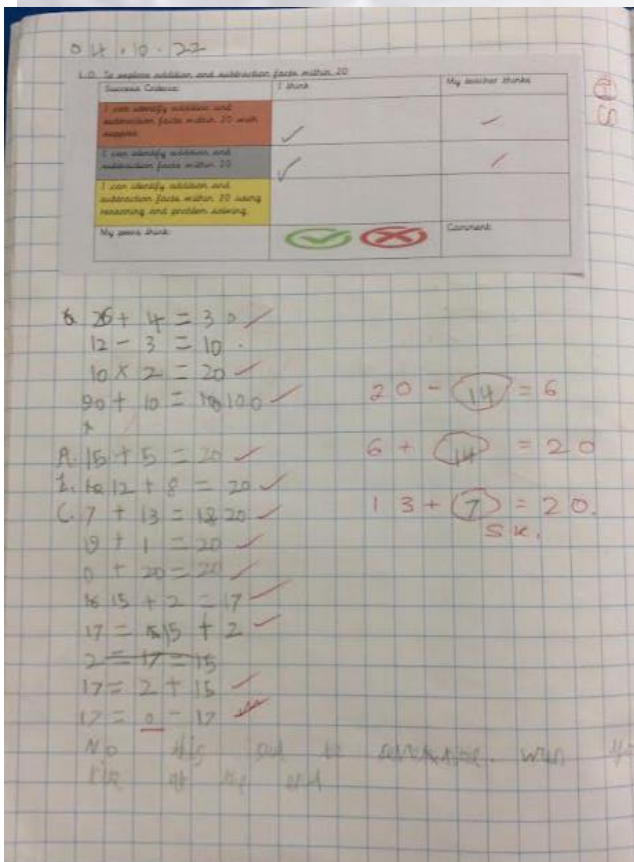 04.10.22
L.O. To explore addition and subtraction facts within 20
Success Criteria:
I think
My teacher thinks
I can identify addition and
subtraction facts within 20 with
support
I can identify addition and
subtraction facts within 20
I can identify addition and
subtraction facts within 20 using
reasoning and problem solving.
My peers think:
Comment:
26 + 4 = 30
12 - 3 = 10
10 x 2 = 20
90 + 10 = 100
20 - 14 = 6
A. 15 + 5 = 20
6 + 14 = 20
12 + 8 = 20
C. 7 + 13 = 20
13 + 7 = 20.
S K.
19 + 1 = 20
0 + 20 = 20
15 + 2 = 17
17 = 15 + 2
2 = 17 = 15
17 = 2 + 15
17 = 0 - 17
No